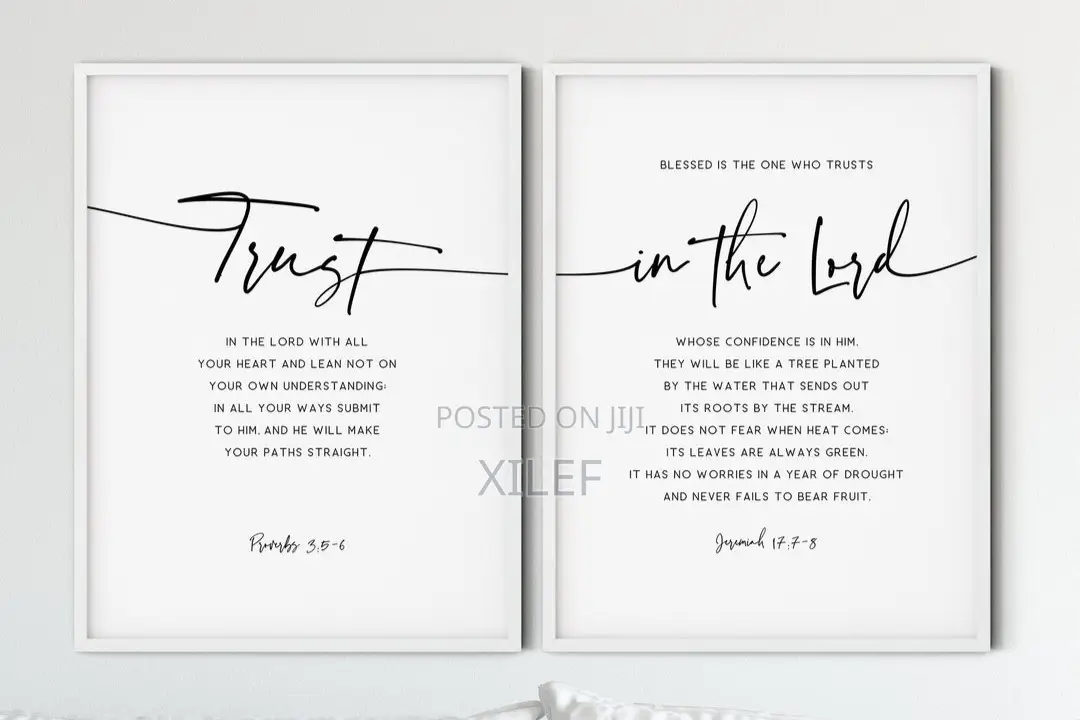 Trust
IN THE LORD WITH ALL
YOUR HEART AND LEAN NOT ON
YOUR OWN UNDERSTANDING;
IN ALL YOUR WAYS SUBMIT
TO HIM, AND HE WILL MAKE
YOUR PATHS STRAIGHT.
Proverbs 3:5-6
BLESSED IS THE ONE WHO TRUSTS
in the Lord
WHOSE CONFIDENCE IS IN HIM.
THEY WILL BE LIKE A TREE PLANTED
BY THE WATER THAT SENDS OUT
ITS ROOTS BY THE STREAM.
IT DOES NOT FEAR WHEN HEAT COMES;
ITS LEAVES ARE ALWAYS GREEN.
IT HAS NO WORRIES IN A YEAR OF DROUGHT
AND NEVER FAILS TO BEAR FRUIT.
Jeremiah 17:7-8
POSTED ON JIJI
XILEF